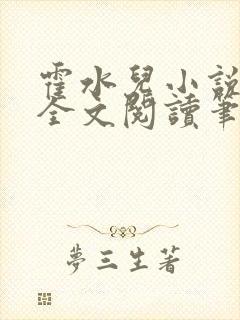 霍水兒小說
全文閱讀筆
夢三生著